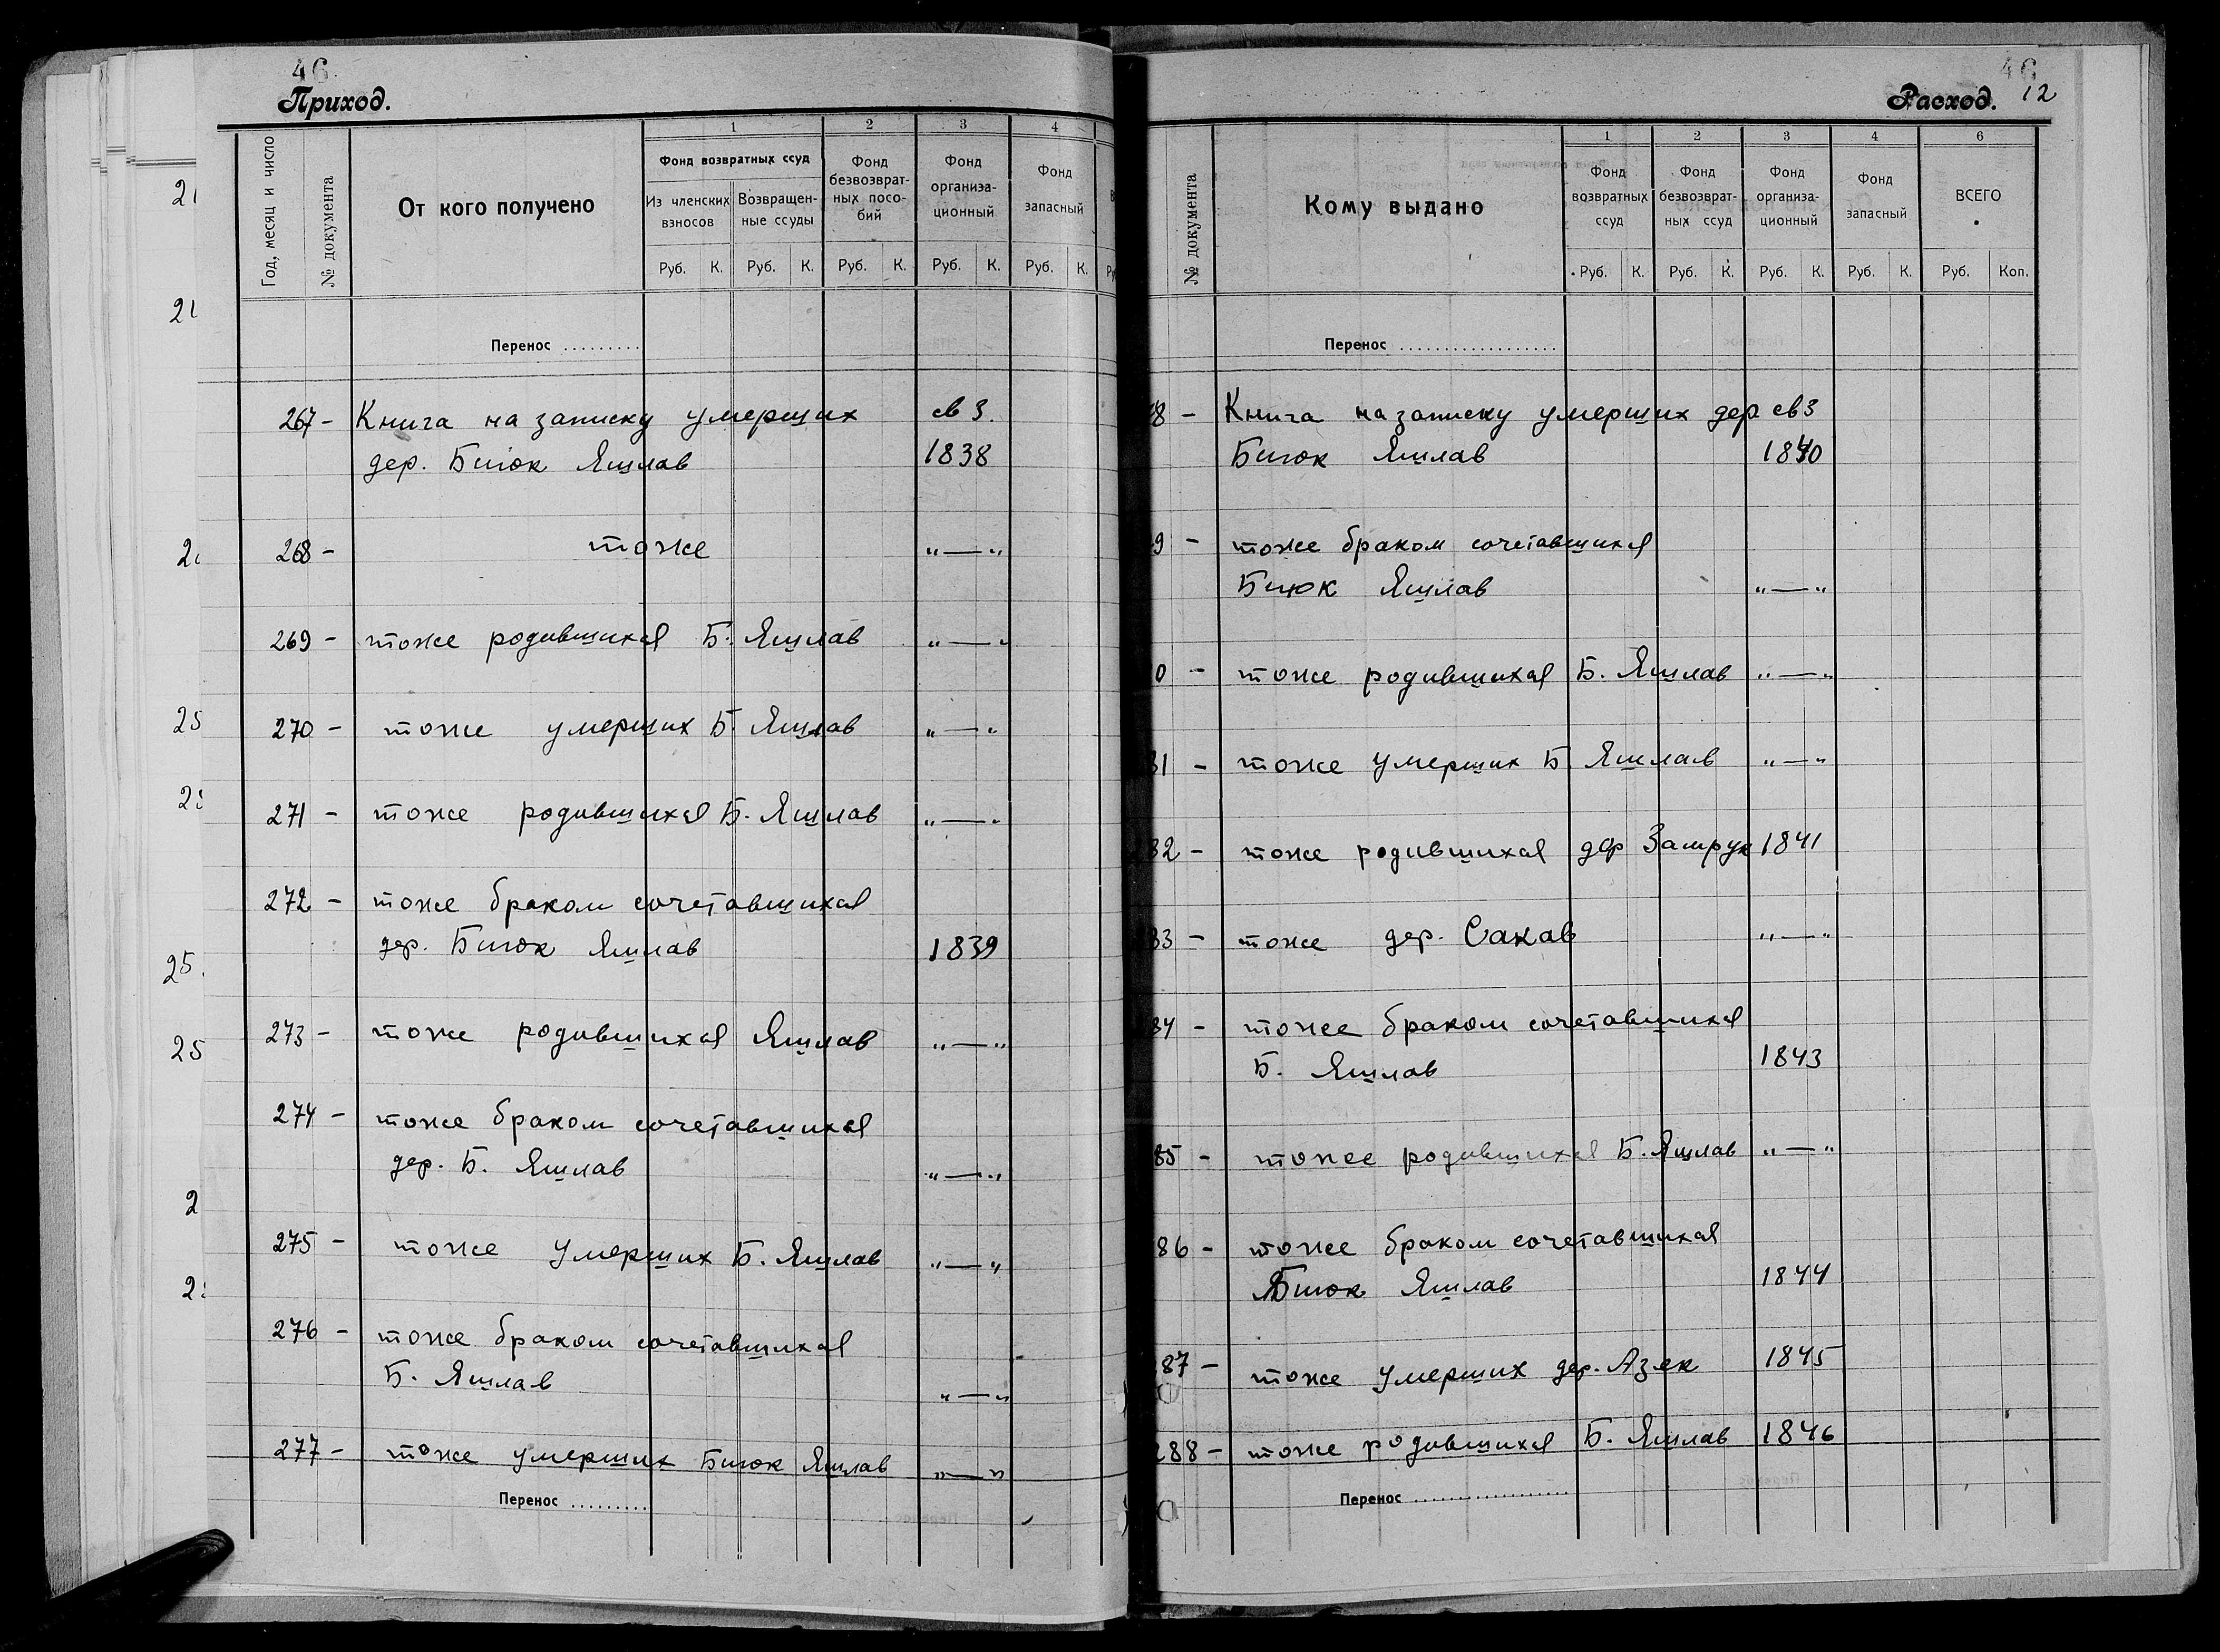 46.
Приход.
Год, месяц и число
№ документа
От кого получено
1
Фонд возвратных ссуд
Из членских взносов
Возвращен-
ные ссуды
2
Фонд
безвозврат-
ных посо-
бий
3
Фонд
организа-
ционный
4
Фонд
запасный
Руб. К. Руб. К. Руб. К. Руб. К. Руб. К.
Перенос .........
267 - Книга на записку умерших св 3.
дер. Биюк Яшлав 1838
268 - тоже "—"
269 - тоже родившихся Б. Яшлав "—"
270 - тоже умерших Б. Яшлав "—"
271 - тоже родившихся Б. Яшлав "—"
272 - тоже браком сочетавшихся
дер. Биюк Яшлав 1839
273 - тоже родившихся Яшлав "—"
274 - тоже браком сочетавшихся
дер. Б. Яшлав "—"
275 - тоже умерших Б. Яшлав "—"
276 - тоже браком сочетавшихся
Б. Яшлав "—"
277 - тоже умерших Биюк Яшлав "—"
Перенос .........
46
Расход. 12
№ документа
Кому выдано
1
Фонд
возвратных
ссуд
2
Фонд
безвозврат-
ных ссуд
3
Фонд
организа-
ционный
4
Фонд
запасный
6
ВСЕГО
Руб. К. Руб. К. Руб. К. Руб. К. Руб. Коп.
Перенос ..................
8 - Книга на записку умерших дер св 3
Биюк Яшлав 1840
9 - тоже браком сочетавшихся
Биюк Яшлав "—"
0 - тоже родившихся Б. Яшлав "—"
81 - тоже умерших Б. Яшлав "—"
82 - тоже родившихся дер Замрук 1841
83 - тоже дер. Сакав "—"
84 - тоже браком сочетавшихся
Б. Яшлав 1843
85 - тоже родившихся Б. Яшлав "—"
86 - тоже браком сочетавшихся
Биюк Яшлав 1844
87 - тоже умерших дер. Азек 1845
288 - тоже родившихся Б. Яшлав 1846
Перенос ..................